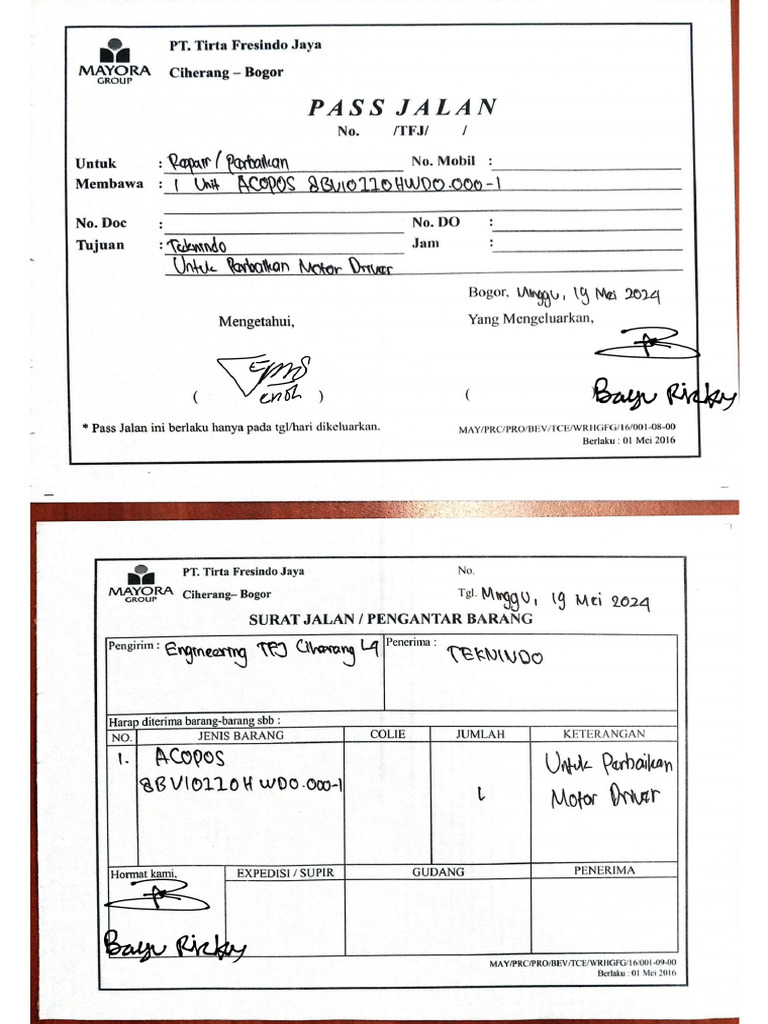 MAYORA
GROUP
PT. Tirta Fresindo Jaya
Ciherang – Bogor
PASS JALAN
No. /TFJ/ /
Untuk : Repair / Perbaikan No. Mobil :
Membawa : 1 Unit ACOPOS 8BVI0220HWD0.000-1
No. Doc : No. DO :
Tujuan : Teknindo Jam :
Untuk Perbaikan Motor Driver
Bogor, Minggu, 19 Mei 2024
Mengetahui, Yang Mengeluarkan,
( ) (
Bayu Rizky
* Pass Jalan ini berlaku hanya pada tgl/hari dikeluarkan.
MAY/PRC/PRO/BEV/TCE/WRHGFG/16/001-08-00
Berlaku : 01 Mei 2016
MAYORA
GROUP
PT. Tirta Fresindo Jaya
Ciherang– Bogor
No.
Tgl. Minggu, 19 Mei 2024
SURAT JALAN / PENGANTAR BARANG
Pengirim : Engineering TFJ Ciherang L9
Penerima : TEKNINDO
Harap diterima barang-barang sbb :
NO. JENIS BARANG COLIE JUMLAH KETERANGAN
1. ACOPOS
8BVI0220HWD0.000-1
1
Untuk Perbaikan
Motor Driver
Hormat kami, EXPEDISI / SUPIR GUDANG PENERIMA
Bayu Rizky
MAY/PRC/PRO/BEV/TCE/WRHGFG/16/001-09-00
Berlaku : 01 Mei 2016